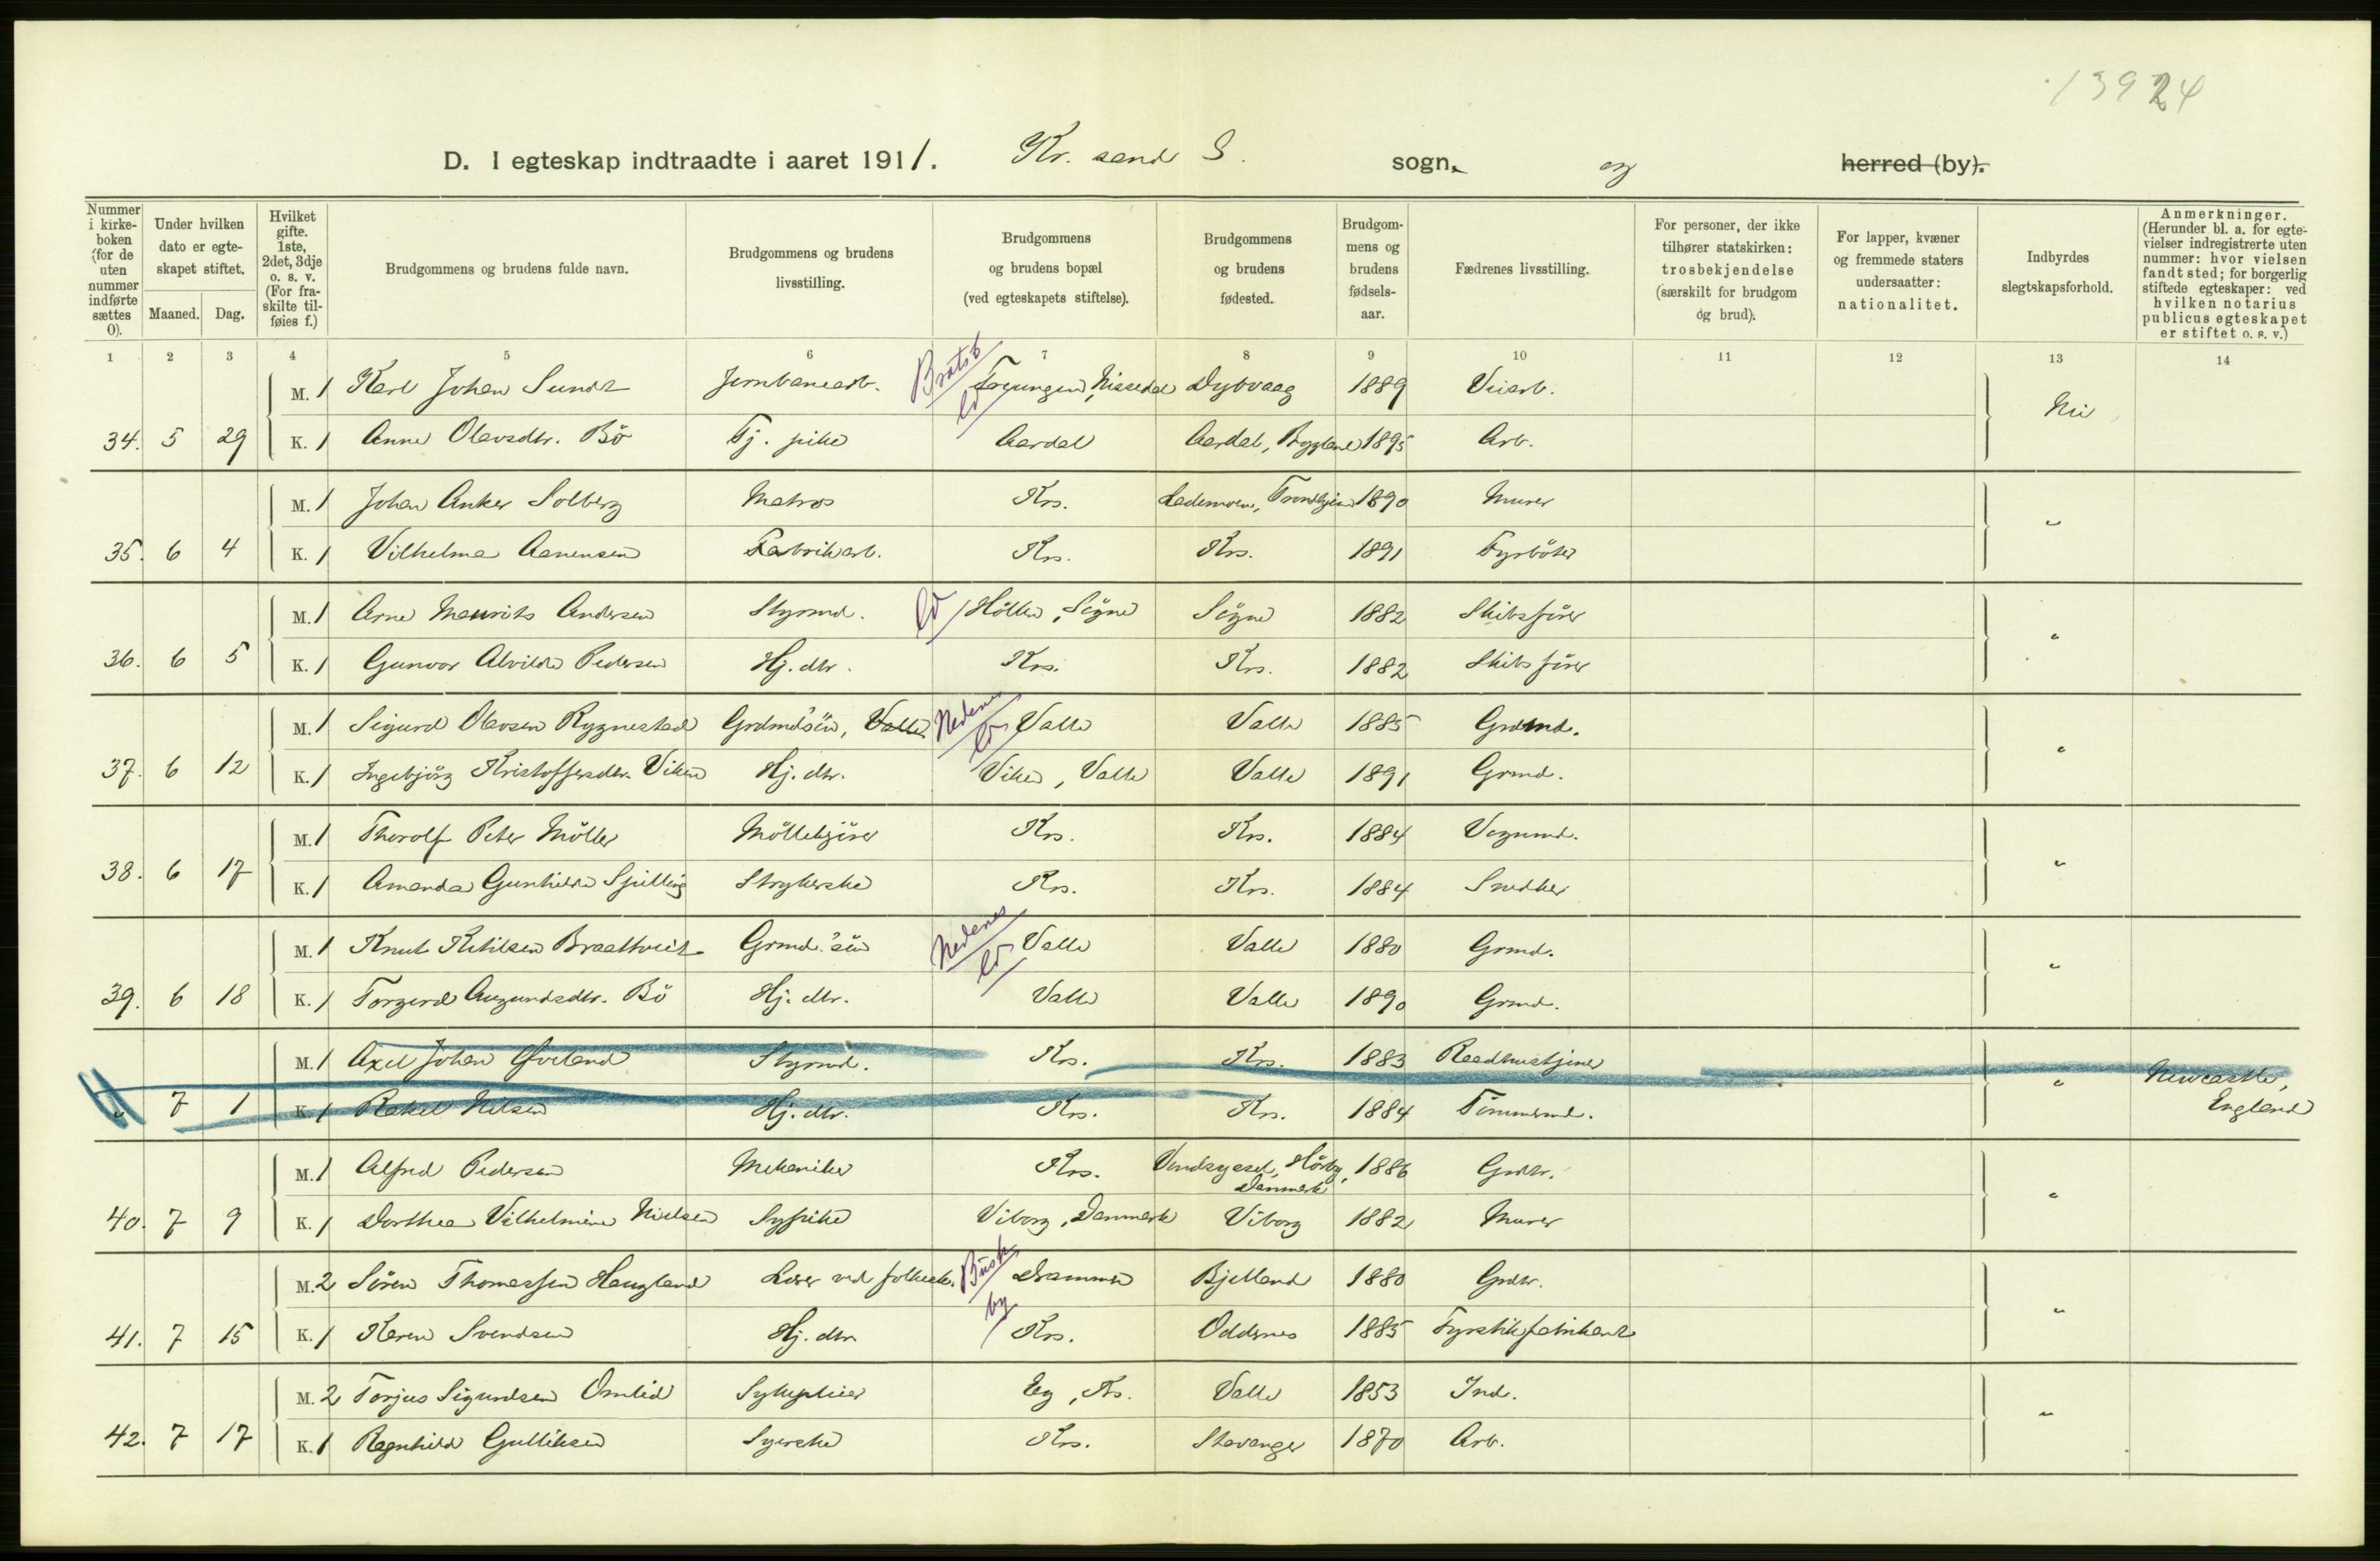 13924
D. I egteskap indtraadte i aaret 1911. Kr. sand S. sogn. og herred (by).
Nummer i kirke-boken (for de uten nummer indførte sættes 0).
Under hvilken dato er egte-skapet stiftet.
Maaned. Dag.
Hvilket gifte. 1ste, 2det, 3dje o. s. v. (For fra-skilte til-føies f.)
Brudgommens og brudens fulde navn.
Brudgommens og brudens livsstilling.
Brudgommens og brudens bopæl (ved egteskapets stiftelse).
Brudgommens og brudens fødested.
Brudgom-mens og brudens fødsels-aar.
Fædrenes livsstilling.
For personer, der ikke tilhører statskirken: trosbekjendelse (særskilt for brudgom og brud).
For lapper, kvæner og fremmede staters undersaatter: nationalitet.
Indbyrdes slegtskapsforhold.
Anmerkninger. (Herunder bl. a. for egte-vielser indregistrerte uten nummer: hvor vielsen fandt sted; for borgerlig stiftede egteskaper: ved hvilken notarius publicus egteskapet er stiftet o. s. v.)
1 2 3 4 5 6 7 8 9 10 11 12 13 14
M. 1 Karl Johan Sundt Jernbanearb. Bratsb ld Treungen, Nissedal Dybvaag 1889 Veiarb. Nei
34. 5 29 K. 1 Anne Olavsdtr. Bö Tj. pike Aardal Aardal, Bygland 1895 Arb.
M. 1 Johan Anker Solberg Matros Krs. Lademoen, Trondhjem 1890 Murer "
35. 6 4 K. 1 Vilhelma Aanensen Fabrikarb. Krs. Krs. 1891 Fyrböter
M. 1 Arne Maurits Andersen Styrmd. ld Höllen, Sögne Sögne 1882 Skibsförer "
36. 6 5 K. 1 Gunvor Alvilde Pedersen Hj. dtr. Krs. Krs. 1882 Skibsförer
M. 1 Sigurd Olavsen Rygnestad Grdmd's sön, Valle Nedenes ld Valle Valle 1885 Grdmd. "
37. 6 12 K. 1 Ingebjörg Kristoffersdtr. Viken Hj. dtr. Viken, Valle Valle 1891 Grmd.
M. 1 Thorolf Peter Möller Möllebygger Krs. Krs. 1884 Vognmd. "
38. 6 17 K. 1 Amanda Gunhilde Spilling Strykerske Krs. Krs. 1884 Snedker
M. 1 Knut Ketilsen Braattveit Grmd.'s sön Nedenes ld Valle Valle 1880 Grmd. "
39. 6 18 K. 1 Torgerd Augundsdtr. Bö Hj. dtr. Valle Valle 1890 Grmd.
M. 1 Axel Johan Öveland Styrmd. Krs. Krs. 1883 Raadhustjener " Newcastle,
" 7 1 K. 1 Rakel Nilsen Hj. dtr. Krs. Krs. 1884 Tömmermd. England
M. 1 Alfred Pedersen Mekaniker Krs. Vendsyssel, Hörby, Danmark 1886 Grdbr. "
40. 7 9 K. 1 Dorthea Vilhelmine Nielsen Sypike Viborg, Danmark Viborg 1882 Murer
M. 2 Sören Thomassen Haugland Lærer ved folkesk. Busk by Drammen Bjelland 1880 Grdbr. "
41. 7 15 K. 1 Karen Svendsen Hj. dtr Krs. Oddernes 1885 Fyrstikfabrikant
M. 2 Torjus Sigurdsen Omlid Sykepleier Eg, Krs. Valle 1853 Ind. "
42. 7 17 K. 1 Ragnhild Gulliksen Syerske Krs. Stavanger 1870 Arb.